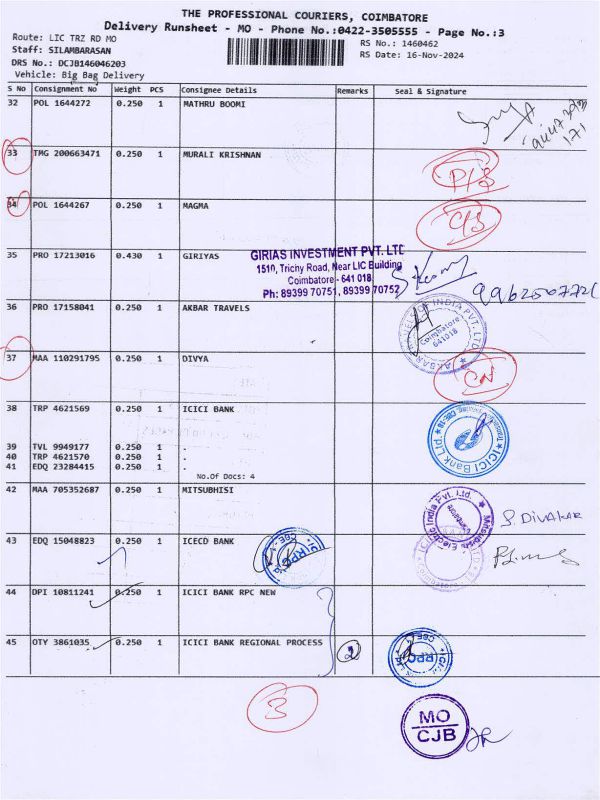 THE PROFESSIONAL COURIERS, COIMBATORE
Delivery Runsheet - MO - Phone No.:0422-3505555 - Page No.:3
Route: LIC TRZ RD MO
Staff: SILAMBARASAN
DRS No.: DCJB146046203
Vehicle: Big Bag Delivery
RS No.: 1460462
RS Date: 16-Nov-2024
S No Consignment No Weight PCS Consignee Details Remarks Seal & Signature
32 POL 1644272 0.250 1 MATHRU BOOMI
33 TMG 200663471 0.250 1 MURALI KRISHNAN
34 POL 1644267 0.250 1 MAGMA
35 PRO 17213016 0.430 1 GIRIYAS
GIRIAS INVESTMENT PVT. LTD
1510, Trichy Road, Near LIC Building
Coimbatore - 641 018
Ph: 89399 70751, 89399 70752
36 PRO 17158041 0.250 1 AKBAR TRAVELS
Coimbatore
641018
37 MAA 110291795 0.250 1 DIVYA
38 TRP 4621569 0.250 1 ICICI BANK
ICICI Bank Ltd.
39 TVL 9949177 0.250 1 .
40 TRP 4621570 0.250 1 .
41 EDQ 23284415 0.250 1 .
No.Of Docs: 4
42 MAA 705352687 0.250 1 MITSUBHISI
Mitsubishi Electric India Pvt. Ltd.
S. DIVAKAR
43 EDQ 15048823 0.250 1 ICECD BANK
RPC
44 DPI 10811241 0.250 1 ICICI BANK RPC NEW
45 OTY 3861035 0.250 1 ICICI BANK REGIONAL PROCESS
2
RPC
3
MO
CJB